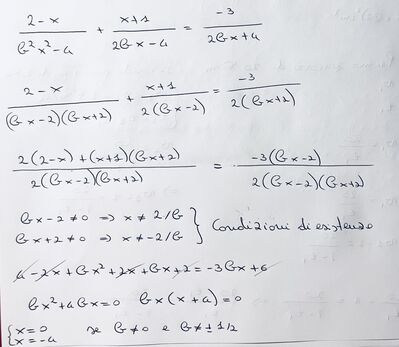 (2-x)/(b²x²-4) + (x+1)/(2bx-4) = -3/(2bx+4)
(2-x)/((bx-2)(bx+2)) + (x+1)/(2(bx-2)) = -3/(2(bx+2))
(2(2-x)+(x+1)(bx+2))/(2(bx-2)(bx+2)) = -3(bx-2)/(2(bx-2)(bx+2))
bx-2≠0 ⇒ x≠2/b
bx+2≠0 ⇒ x≠-2/b } Condizioni di esistenza
4-2x+bx²+2x+bx+2=-3bx+6
bx²+4bx=0 bx(x+4)=0
{x=0 se b≠0 e b≠±1/2
x=-4